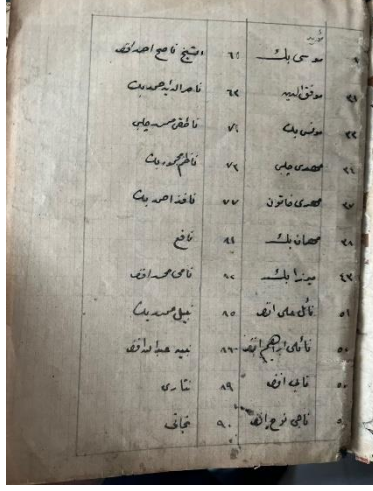 موسى بك ٦١ الشيخ ناصح احمد افند
٣١ موفق الدين ٦٣ ناصر الدين احمد بك
٣٣ مونس بك ٧١
مهدى چلبى ٧٢ ناظم محمود بك
٣٧ مهرى خاتون ٧٧ نافذ احمد بك
٣٨ ٨١ نافع
٤٣ ميرزا بك ٨٢ نامى محمد افند
٥١ نائل على افند ٨٥ نبيل محمد بك
٥٠ نائلى ابراهيم افند ٨٦ نبيه عبدالله افند
٥٠ نابى افند ٨٩ نثارى
ناجى نوح افند ٩٠ نجاتى